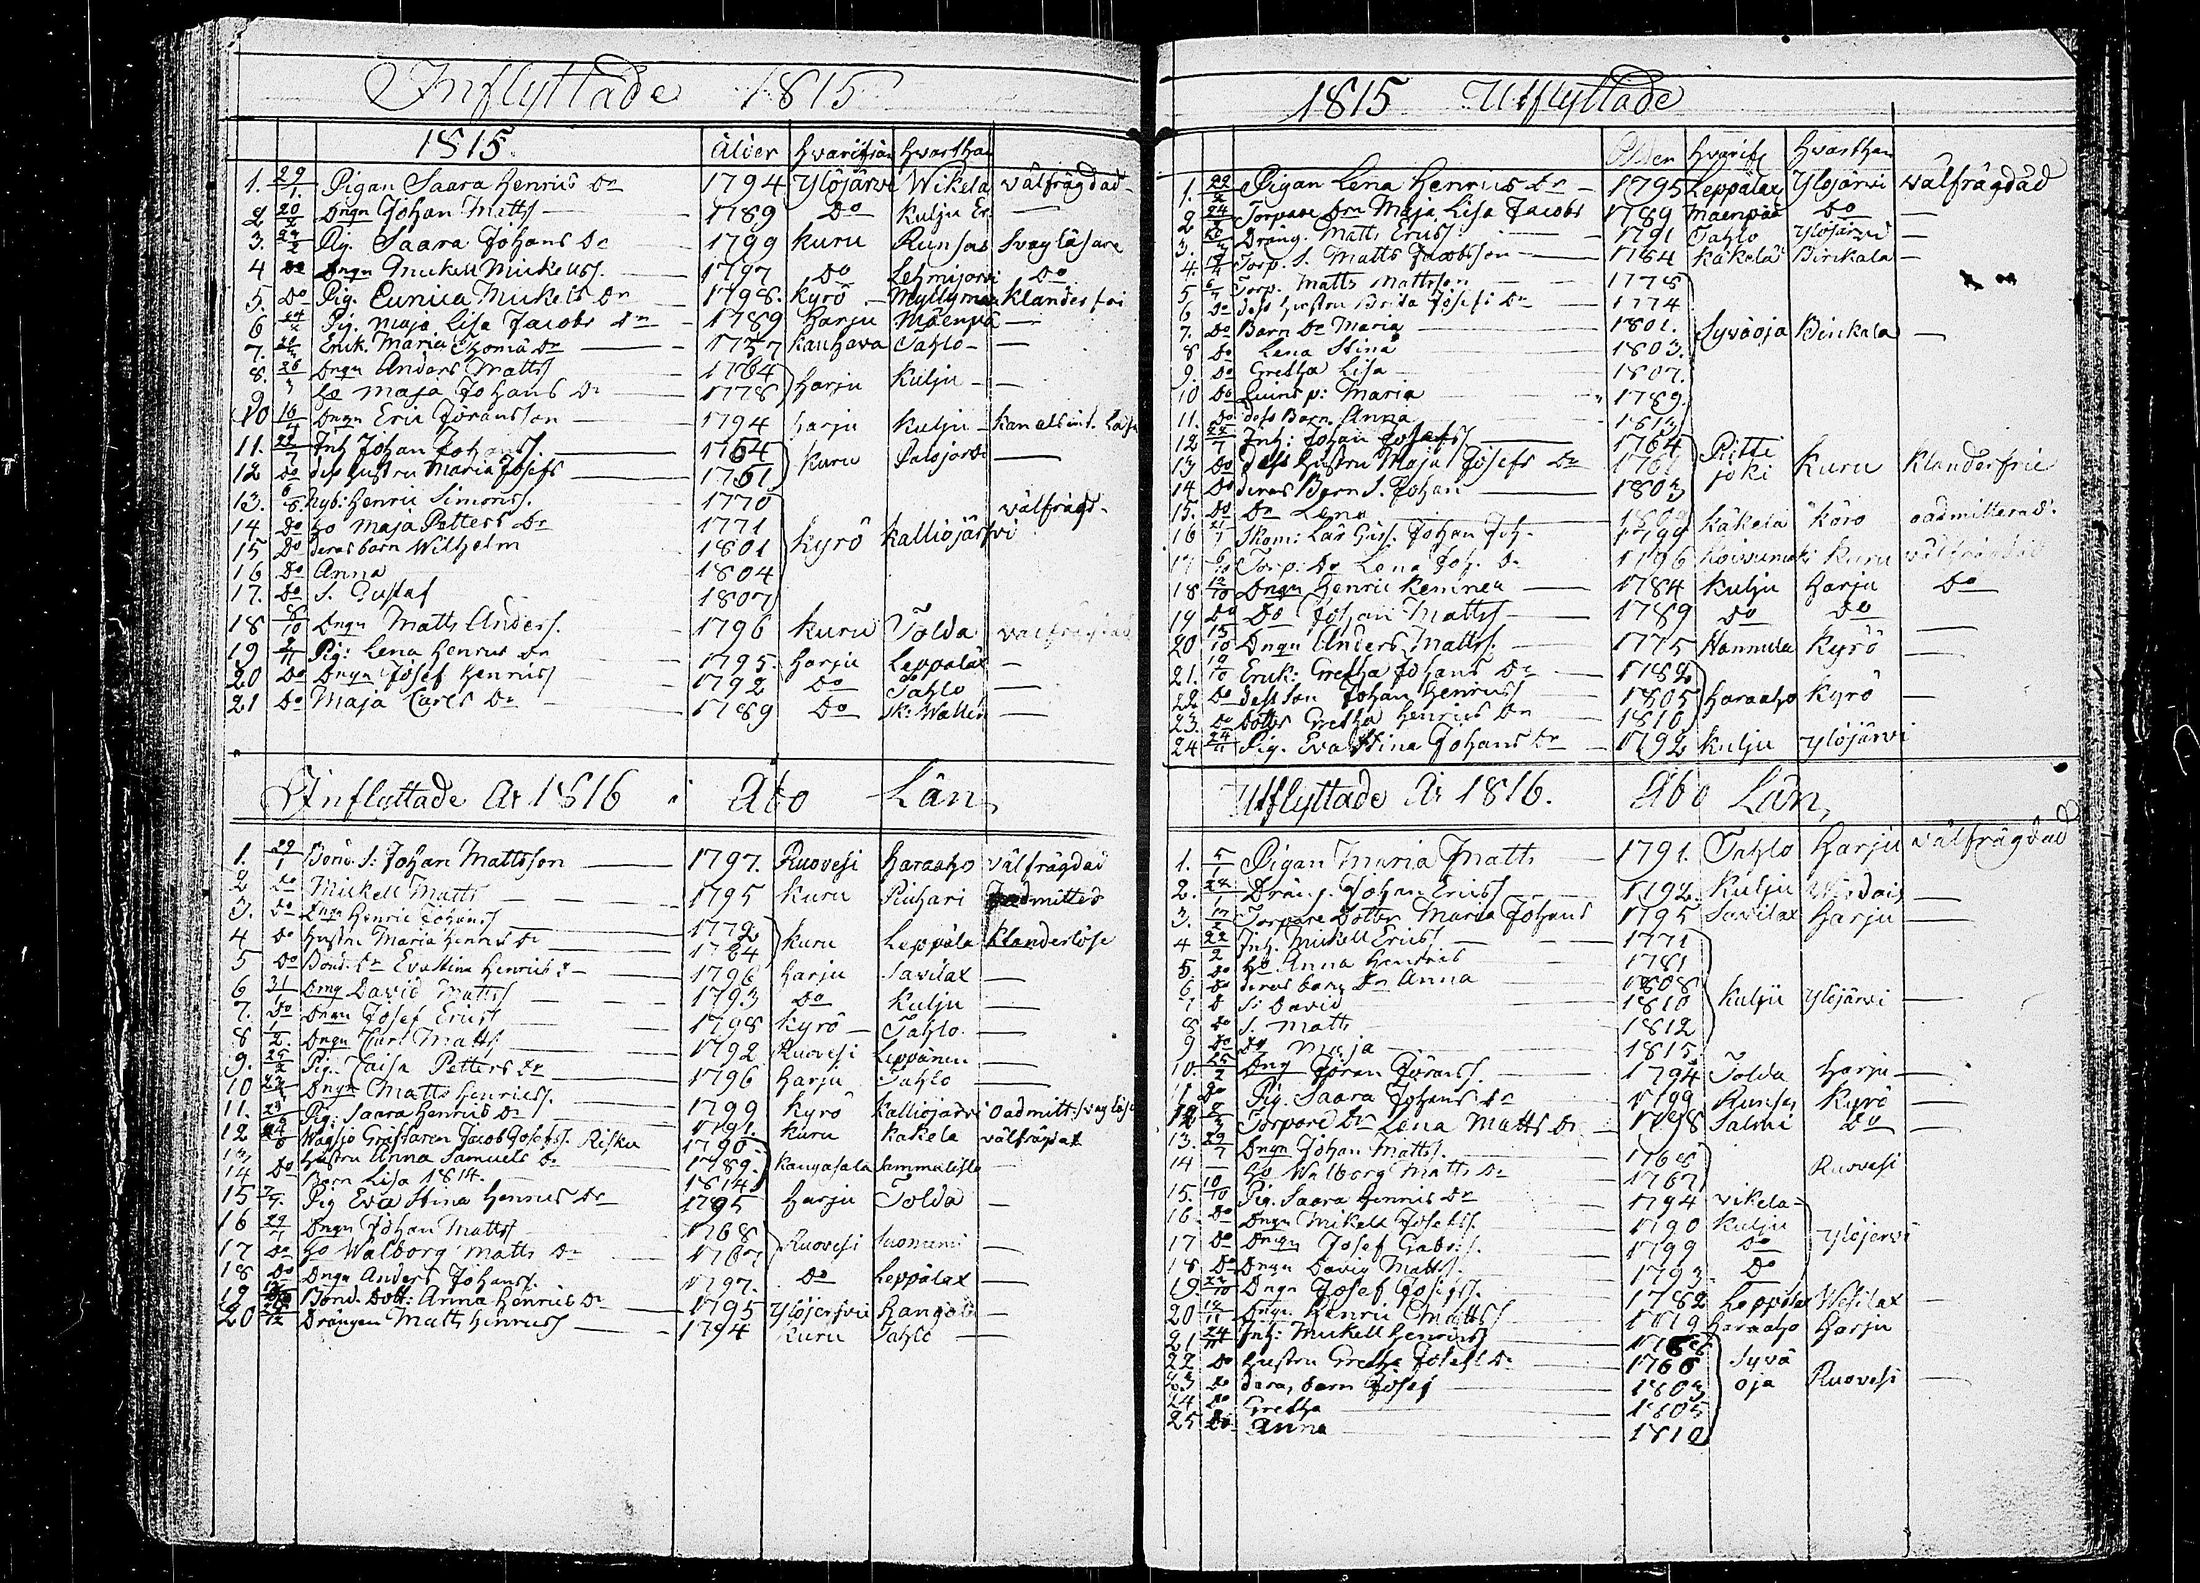 Inflyttade 1815
1815. Ålder hvarifrån hvarthän
1. 29/1. Pigan Saara Henrics Dr 1794 Ylöjärvi Wikela välfrägdad
2 20/2 Drngn Johan Matts 1789 Do Kulju
3. Pig. Saara Johans Dr 1799 Kuru Runsas svag läsare
4 Do Drngn Mickell Mickelss. 1797 Do Do
5. Do Pig. Eunica Mickels Dr 1798. Kyrö
6 24/2 Pig. Maja Lisa Jacobs Dr 1789 Harju Mäenpä
7. Enck. Maria Thomä Dr 1757 Kauhava Tahlo
8. Drngn Anders Matts 1764 Harju Kulju
9 ho Maja Johans Dr 1778
10 Drngn Eric Göransson 1794 Harju Kulju
11. Inh Johan Johanss. 1754 Kuru Palojärvi
12 Do dess hustru Maria Josefs 1751
13. Nyb: Henric Simonss. 1770 välfrägd.
14 Do ho Maja Petters Dr 1771 Kyrö Kalliojärvi
15 Do deras barn Wilhelm 1801
16 Do Anna 1804
17. Do S. Gustaf 1807
18 8/10 Drngn Matts Anderss. 1796 Kuru Tolda välfrägdad
19 Pig: Lena Henrics Dr 1795. Harju Leppälax
20 Do Drngn Josef Henricss 1792 Do Tahlo
21 Do Maja Carls Dr 1789 Do sk: Wallen
Inflyttade År 1816 i Åbo Län
1. 29/1 Bond. S: Johan Mattsson 1797. Ruovesi Haraaho välfrägdad
2 Do Mickell Matts 1795 Kuru Piuhari
3. Do Drngn Henric Johanss 1772 Kuru Leppäla klanderlöse
4 Do hustru Maria Henrics Dr 1764
5 Do Bond. Dr Eva Stina Henrics Dr 1796 Harju Savilax
6 31/1 Drng David Mattss 1793 Do Kulju
7. Do Drngn Josef Ericss 1798 Kyrö Tahlo
8 1/2. Drngn Carl Matts 1792 Ruovesi Leppänen
9. Pig. Caisa Petters Dr 1796 Harju Tahlo
10 Drngn Matts Henricss. 1799 Kyrö Kalliojärvi
11. Pig: Saara Henrics Dr 1791. Kuru Kakela välfrägdat
12 Jacob Josefss. Risku 1790
13 hustru Anna Samuels Dr 1789. Kangasala
14 Do Barn Lisa 1814. 1814
15 Pig Eva Stina Henrics Dr 1795 Harju Tolda
16 Drngn Johan Matts 1768 Ruovesi
17 Do ho Walborg Matts Dr 1767
18 Do Drngn Anders Johanss. 1797. Do Leppälax
19 Bond. Dott: Anna Henrics Dr 1795 Ylöjerfvi
20 Drängen Matts Henricss 1794 Kuru Tahlo
1815 Utflyttade
hvarthän
1. Pigan Lena Henrics Dr 1795 Leppälax Ylöjärvi välfrägdad
2 24/2 Torpare Drn Maja Lisa Jacobs 1789 Mäenpää Do
3. Dräng. Matts Ericss 1791 Tahlo Ylöjärvi
4. Torp. S. Matts Jacobsson 1764 Käkelä Birckala
5 Torp. Matts Mattsson 1778
6 Do dess hustru Brita Josefs Dr 1774
7. Do Barn Dr Maria 1801. Syväoja Birckala
8 Do Lena Stina 1803.
9. Do Gretha Lisa 1807.
10 Do Maria 1789
11. Do dess Barn. Anna 1813
12 Inh: Johan Josefss 1764 Pitti
13 Do dess hustru Maja Josefs Dr joki Kuru klanderfrie
14 Do deras Barn S. Johan 1803
15. Do Dr Lena
16 21/7 Johan Joh. 1799 Käkelä
17 Torp: Dr Lena Joh. Dr 1796 Kuru välfrägdad
18 12/10 Drngn Henric 1784 Kulju Harju Do
19 Do Do Johan Mattss 1789 Do Do
20 15/10 Drngn Anders Matts. 1775 Hannula Kyrö
21. 19/10 Enck: Gretha Johans Dr 1782
22 Do dess son Johan Henricss 1805 Haraaho Kyrö
23. Do Dotter Gretha Henrics Dr 1810
24 24/11 Pig. Eva Stina Johans Dr 1792 Kulju Ylöjärvi
Utflyttade År 1816. Åbo Län,
1. 5/1 Pigan Maria Matts 1791. Tahlo Harju välfrägdad
2. Dräng. Johan Ericss 1792. Kulju
3. Torpare Dotter Maria Johans 1795 Savilax Harju
4 22/2 Inh. Mickell Ericss 1771
5. Do ho Anna Hendrics 1781
6 Do deras barn Dr Anna 1808
7 D S: David 1810 Kulju Ylöjärvi
8 Do S. Matts 1812
9 Do Dr Maja 1815
10. 25/2 Drng Göran Göranss. 1794 Tolda Harju
11 Do Pig. Saara Johans Dr 1799 Runsas Kyrö
12 Torpare Dr Lena Matts Dr 1798 Salmi Do
13. 29/7 Drngn Johan Mattss. 1768
14 — ho Walborg Matts Dr 1767 Ruovesi
15. Pig. Saara Henrics Dr 1794 Vikela
16. Do Drngn Mickell Josefss. 1790 Kulju
17 Do Drngn Josef Gabr: S. 1799 Do Ylöjervi
18 Do Drngn David Matts. 1793 Do
19. Drngn Josef Josefss. 1782 Leppälax Vesilax
20 Drngn. Henric Matts Haraaho Harju
21 24/11 Inh: Mickell Henricss Syvä
22 Do hustru Gretha Josefs Dr 1766
23 Do deras barn Josef 1803 oja Ruovesi
24 Do Gretha 1805
25 Do Anna 1810